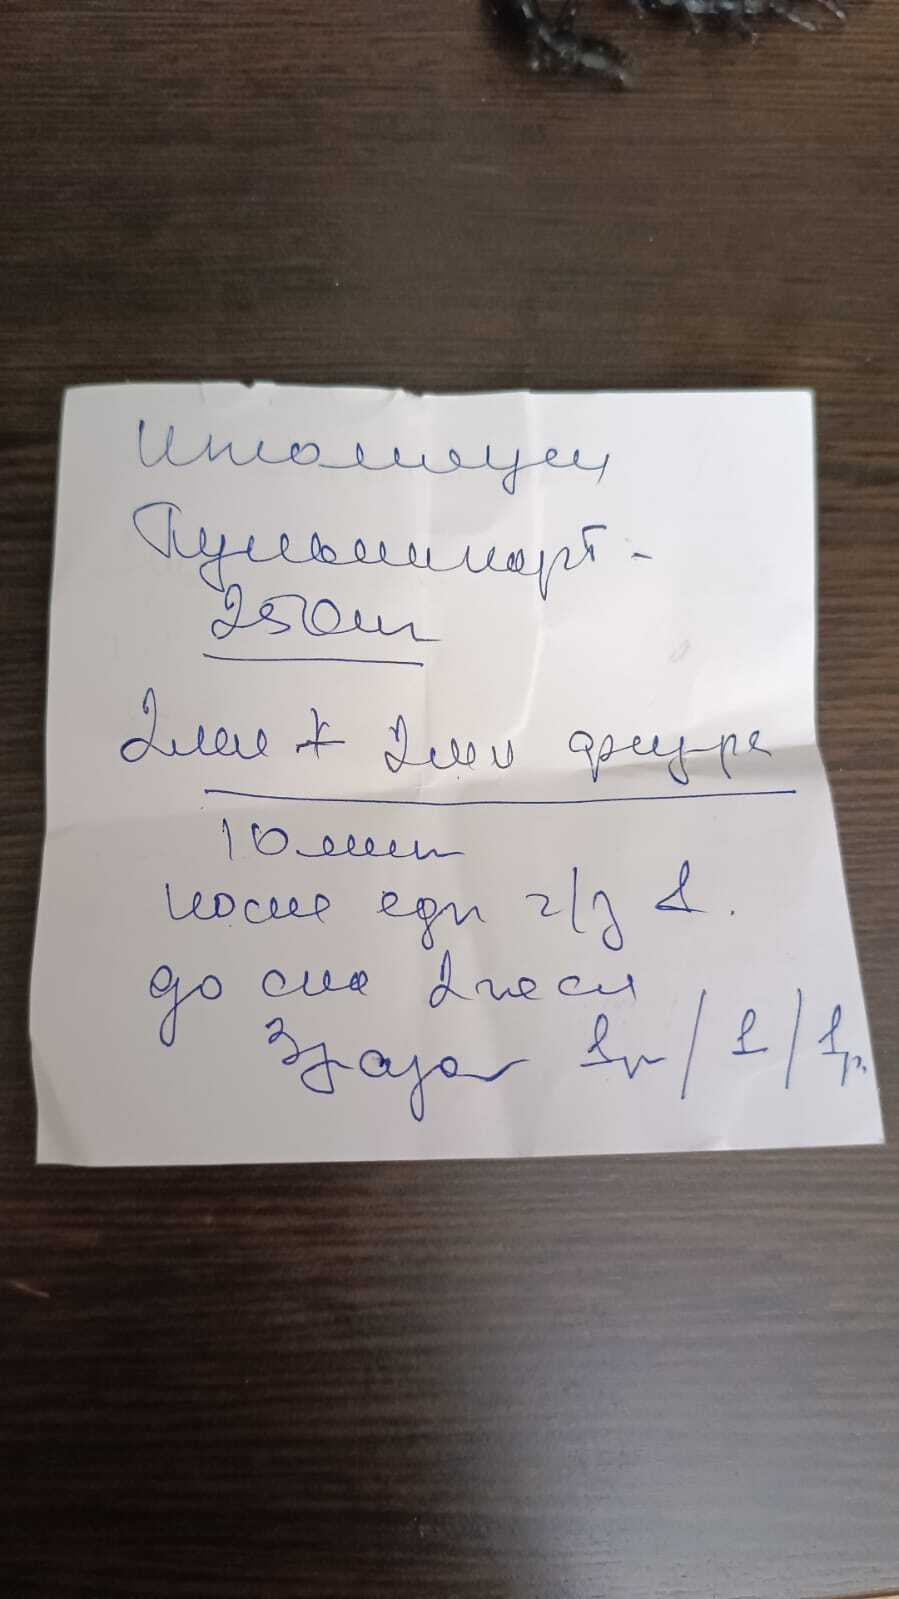 Ингаляции
Пульмикорт -
250 мг
2 мл + 2 мл физ-ра
10 мин
после еды ч/з 1.
до сна 2 часа
3 раза 1р / 1 / 1р.